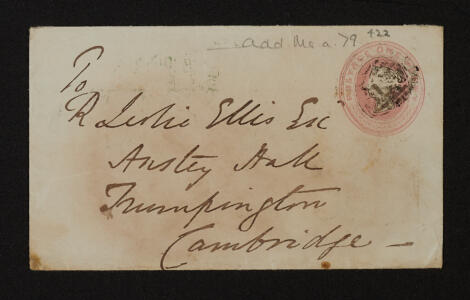 Add. Ms a. 79 422
POSTAGE ONE
To
R Leslie Ellis Esc
Anstey Hall
Trumpington
Cambridge